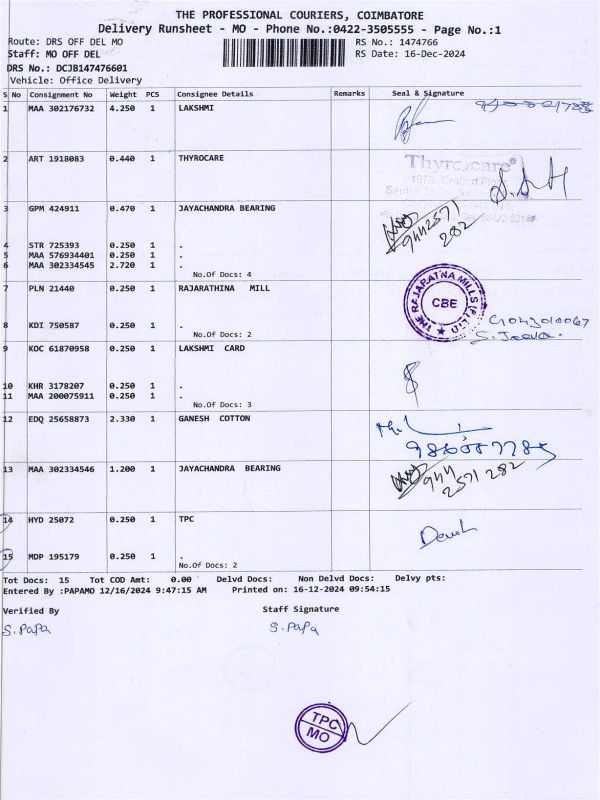 THE PROFESSIONAL COURIERS, COIMBATORE
Delivery Runsheet - MO - Phone No.:0422-3505555 - Page No.:1
Route: DRS OFF DEL MO RS No.: 1474766
Staff: MO OFF DEL RS Date: 16-Dec-2024
DRS No.: DCJB147476601
Vehicle: Office Delivery
S No Consignment No Weight PCS Consignee Details Remarks Seal & Signature
1 MAA 302176732 4.250 1 LAKSHMI
2 ART 1918083 0.440 1 THYROCARE
Thyrocare
3 GPM 424911 0.470 1 JAYACHANDRA BEARING
9442571
282
4 STR 725393 0.250 1 .
5 MAA 576934401 0.250 1 .
6 MAA 302334545 2.720 1 .
No.Of Docs: 4
7 PLN 21440 0.250 1 RAJARATHINA MILL
THE RAJARATNA MILLS (P) LTD CBE
8 KDI 750587 0.250 1 .
No.Of Docs: 2
9 KOC 61870958 0.250 1 LAKSHMI CARD
10 KHR 3178207 0.250 1 .
11 MAA 200075911 0.250 1 .
No.Of Docs: 3
12 EDQ 25658873 2.330 1 GANESH COTTON
13 MAA 302334546 1.200 1 JAYACHANDRA BEARING
944
2571 282
14 HYD 25072 0.250 1 TPC
15 MDP 195179 0.250 1 .
No.Of Docs: 2
Tot Docs: 15 Tot COD Amt: 0.00 Delvd Docs: Non Delvd Docs: Delvy pts:
Entered By :PAPAMO 12/16/2024 9:47:15 AM Printed on: 16-12-2024 09:54:15
Verified By Staff Signature
S. PaPa S. PaPa
TPC
MO